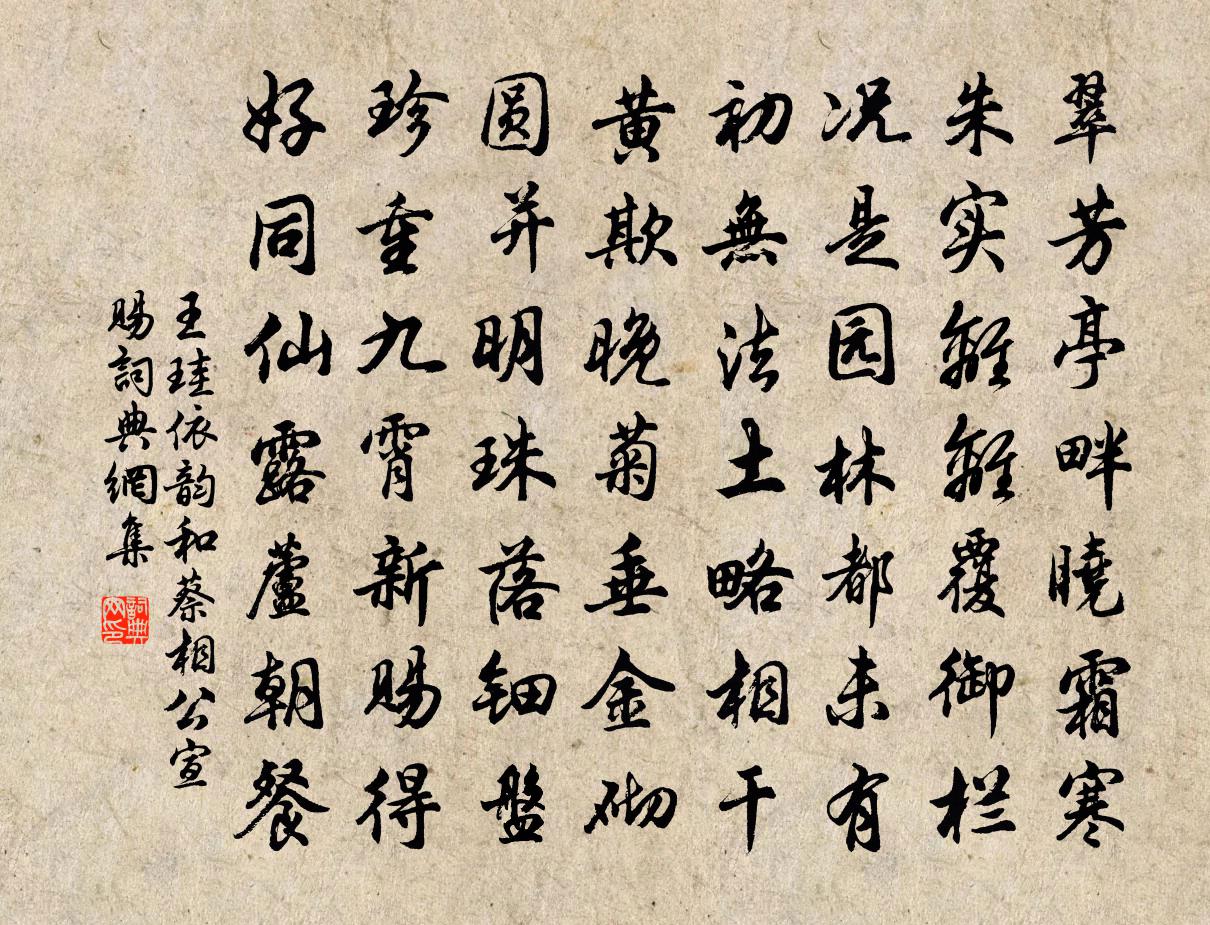 翠芳亭畔曉霜寒
朱实離離覆御栏
况是园林都未有
初無法土略相干
黄欺晚菊垂金砌
圆并明珠落钿盤
珍重九霄新赐得
好同仙露蘆朝餐
王珪依韵和蔡相公宣
赐詞典網集
詞典
网